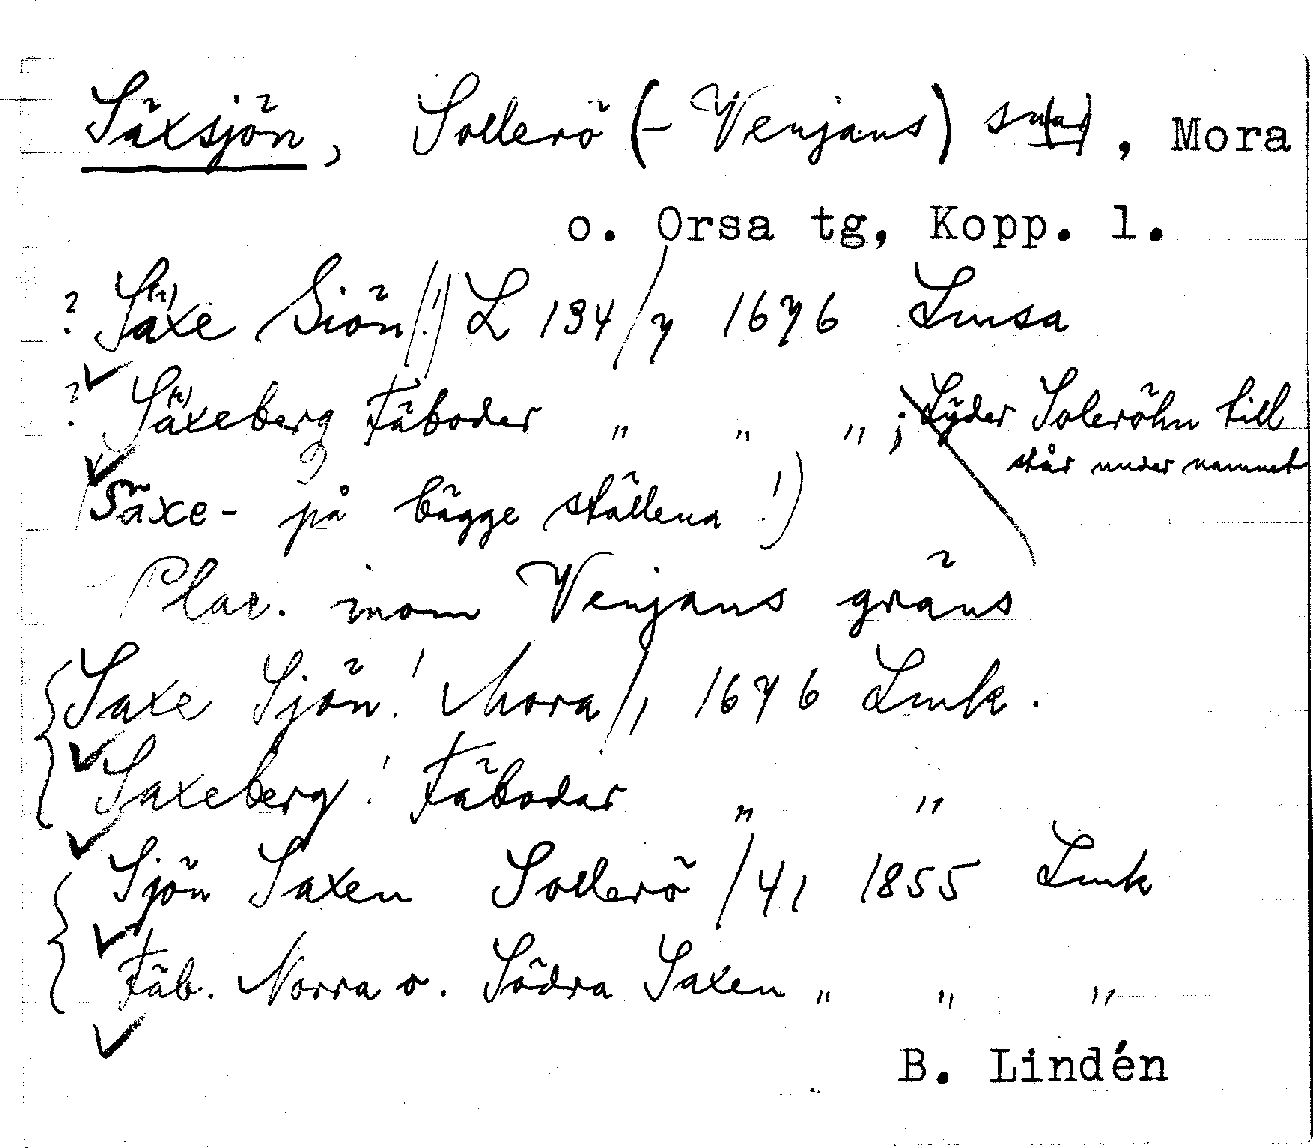 Säxsjön, Sollerö (- Venjans) snr, Mora
o. Orsa tg, Kopp. l.
? Säxe Siön (!) L 134/7 1676 Lmsa
? Säxeberg Fäboder " " " ; Lyder Soleröhn till
står under namnet
(Säxe- på bägge ställena!)
Plac. inom Venjans gräns
Saxe Sjön! Mora/1, 1676 Lmk.
Saxeberg! Fäbodar " "
Sjön Saxen Sollerö /41 1855 Lmk
Fäb. Norra o. Södra Saxen " " "
B. Lindén